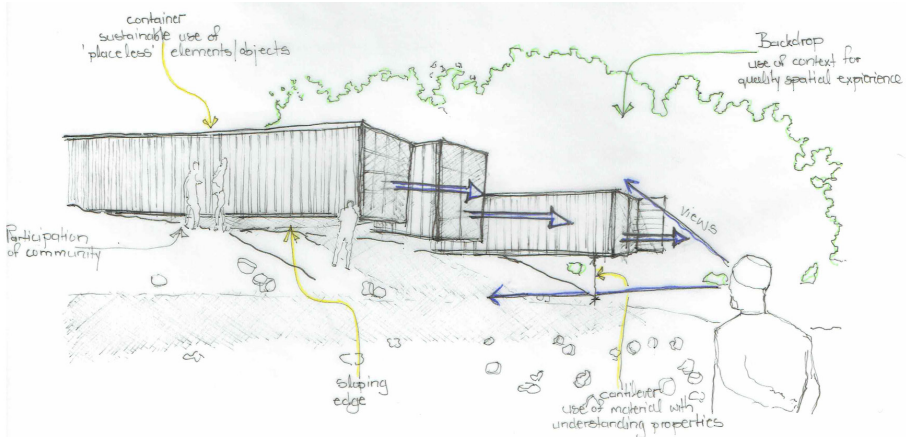 container
sustainable use of
'placeless' elements/objects
Backdrop
use of context for
quality spatial expirience
views
Participation
of community
sloping
edge
cantilever
use of material with
understanding properties